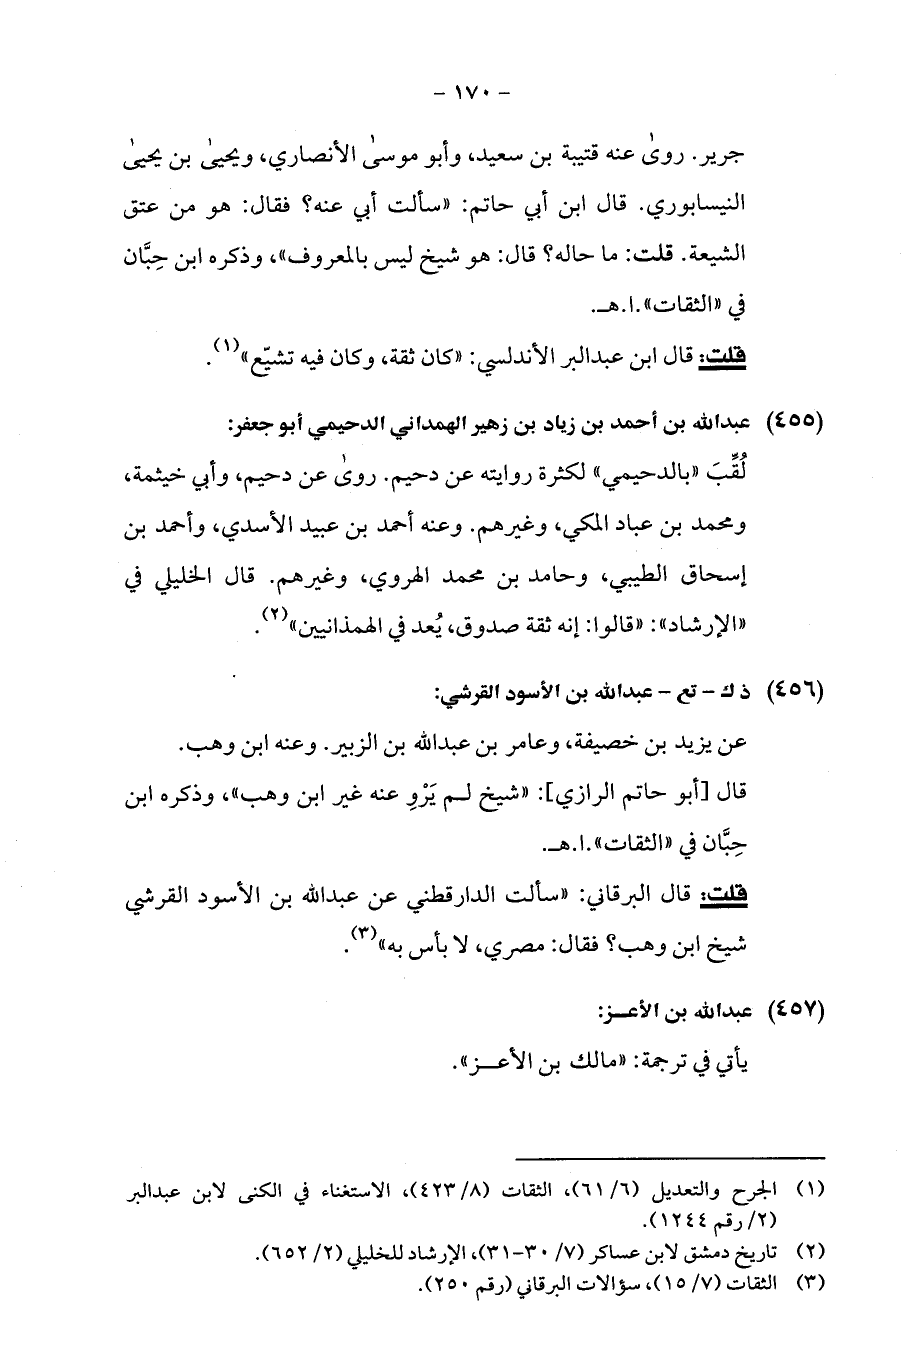 - ١٧٠ -
جرير. روىٰ عنه قتيبة بن سعيد، وأبو موسىٰ الأنصاري، ويحيىٰ بن يحيىٰ
النيسابوري. قال ابن أبي حاتم: «سألت أبي عنه؟ فقال: هو من عتق
الشيعة. قلت: ما حاله؟ قال: هو شيخ ليس بالمعروف»، وذكره ابن حِبَّان
في «الثقات».ا.هـ.
قلت: قال ابن عبدالبر الأندلسي: «كان ثقة، وكان فيه تشيّع»(١).
(٤٥٥) عبدالله بن أحمد بن زياد بن زهير الهمداني الدحيمي أبو جعفر:
لُقِّبَ «بالدحيمي» لكثرة روايته عن دحيم. روىٰ عن دحيم، وأبي خيثمة،
ومحمد بن عباد المكي، وغيرهم. وعنه أحمد بن عبيد الأسدي، وأحمد بن
إسحاق الطيبي، وحامد بن محمد الهروي، وغيرهم. قال الخليلي في
«الإرشاد»: «قالوا: إنه ثقة صدوق، يُعد في الهمذانيين»(٢).
(٤٥٦) ذ ك - تع - عبدالله بن الأسود القرشي:
عن يزيد بن خصيفة، وعامر بن عبدالله بن الزبير. وعنه ابن وهب.
قال [أبو حاتم الرازي]: «شيخ لـم يَرْوِ عنه غير ابن وهب»، وذكره ابن
حِبَّان في «الثقات».ا.هـ.
قلت: قال البرقاني: «سألت الدارقطني عن عبدالله بن الأسود القرشي
شيخ ابن وهب؟ فقال: مصري، لا بأس به»(٣).
(٤٥٧) عبدالله بن الأعـز:
يأتي في ترجمة: «مالك بن الأعـز».
(١) الجرح والتعديل (٦/ ٦١)، الثقات (٨/ ٤٢٣)، الاستغناء في الكنى لابن عبدالبر
(٢/ رقم ١٢٤٤).
(٢) تاريخ دمشق لابن عساكر (٧/ ٣٠-٣١)، الإرشاد للخليلي (٢/ ٦٥٢).
(٣) الثقات (٧/ ١٥)، سؤالات البرقاني (رقم ٢٥٠).